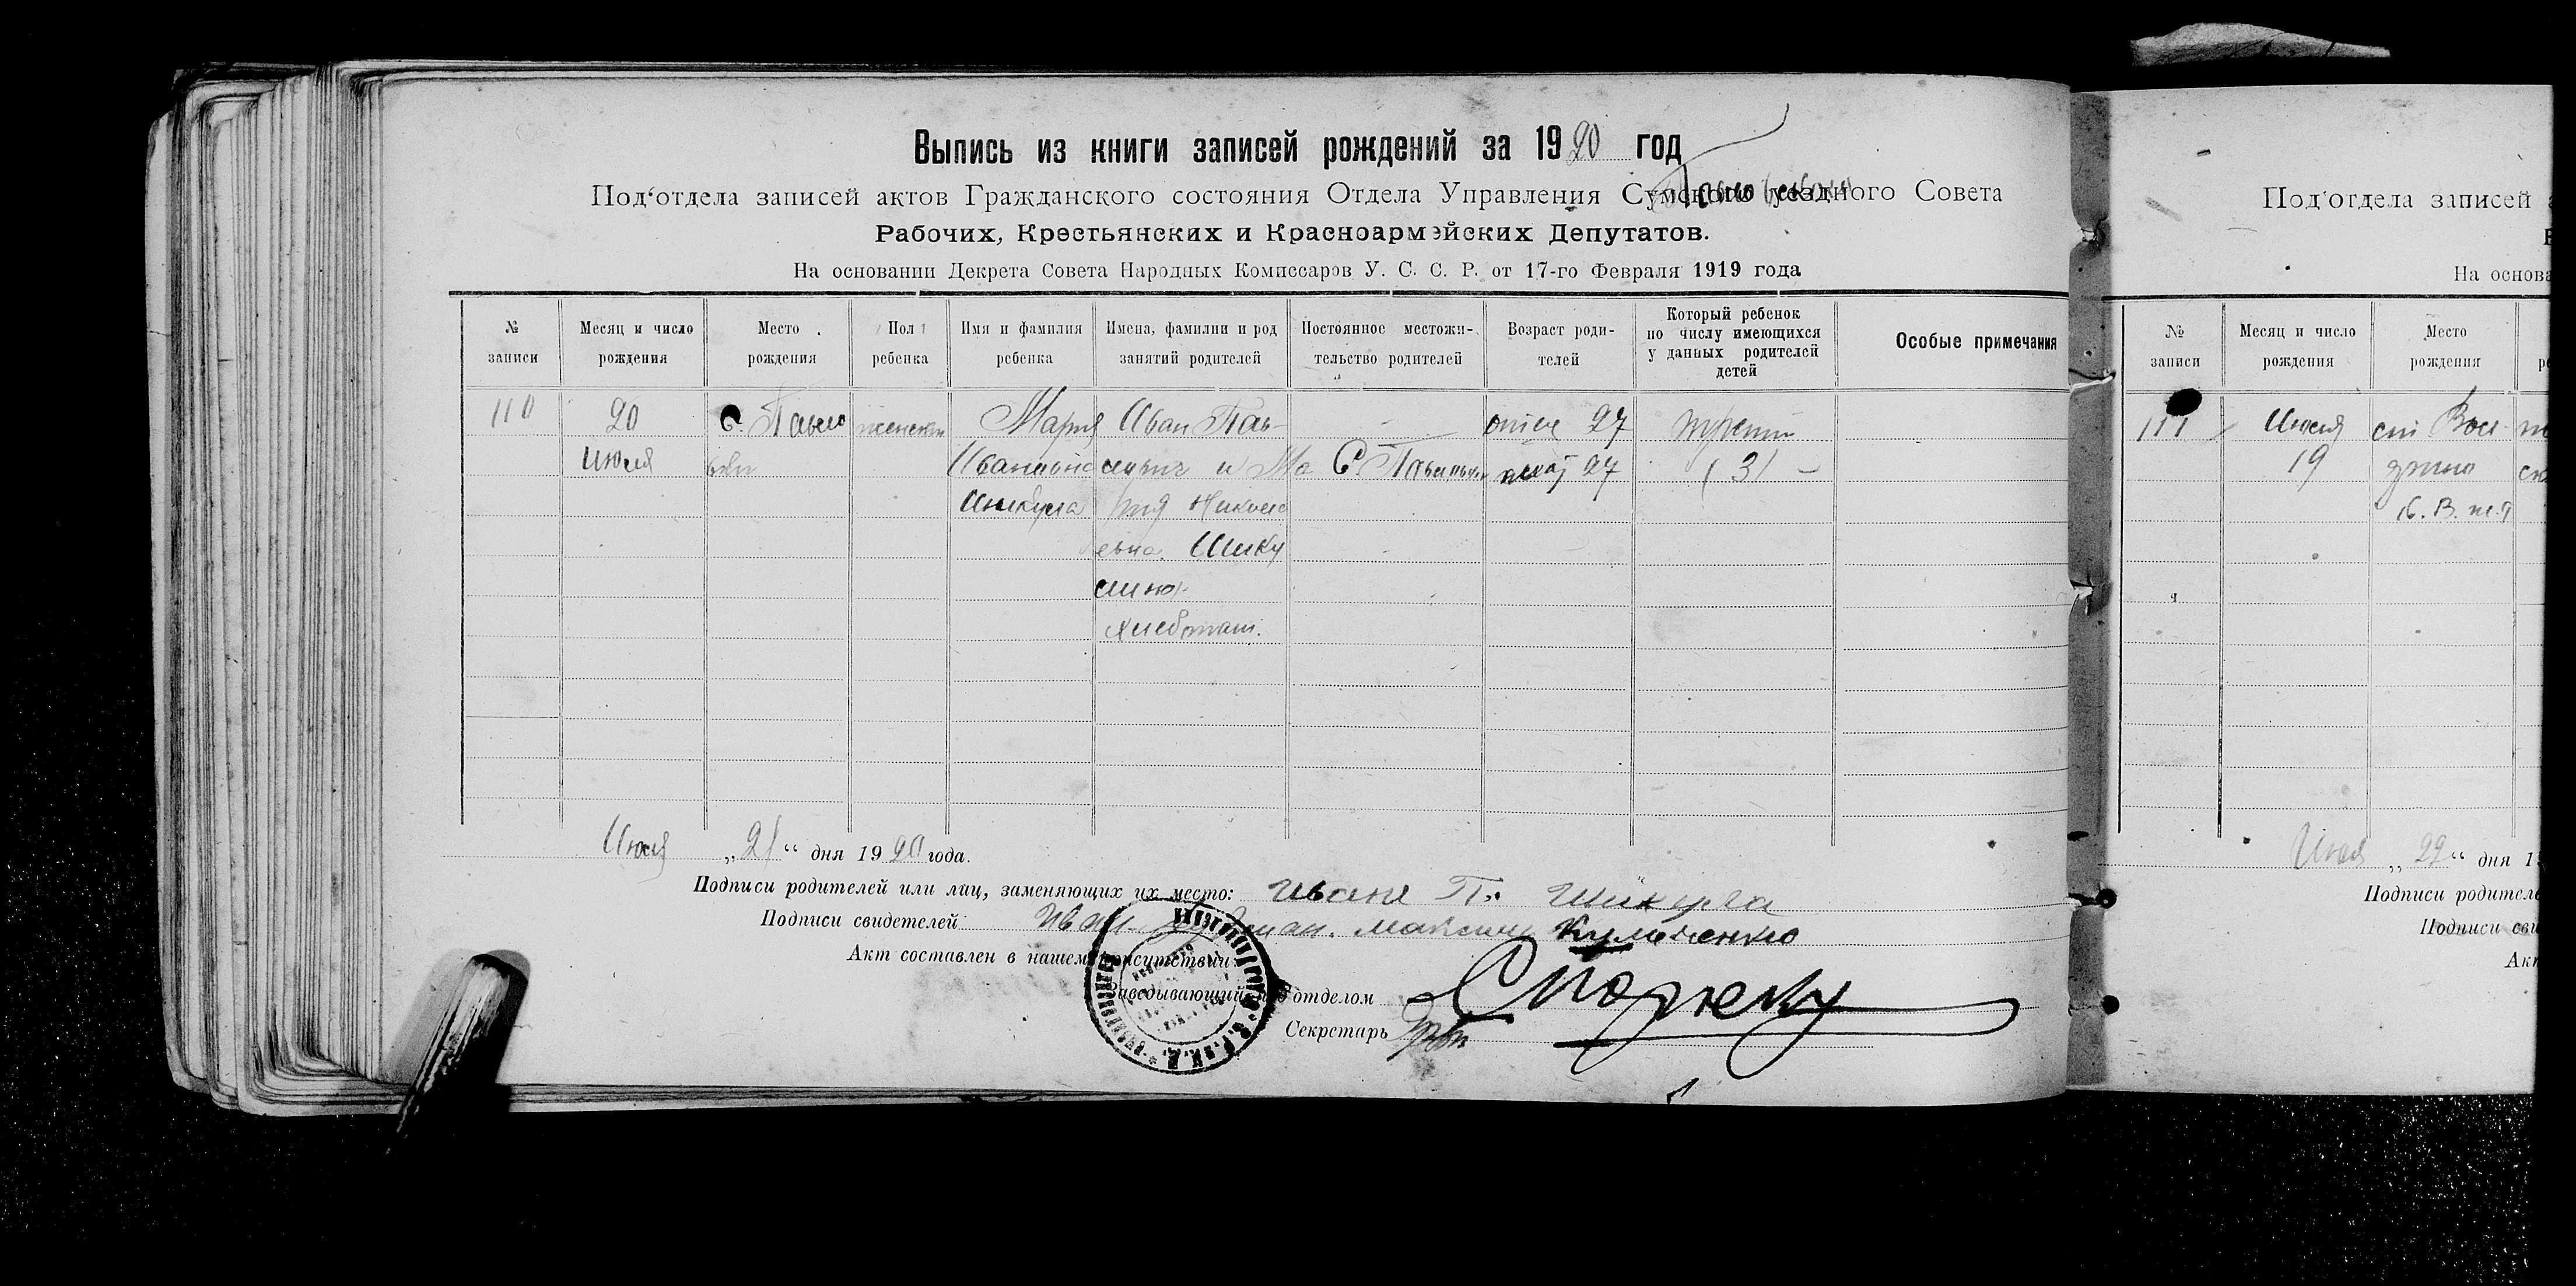 Выпись из книги записей рождений за 1920 год
Под'отдела записей актов Гражданского состояния Отдела Управления Сумского уездного Совета
Рабочих, Крестьянских и Красноармейских Депутатов.
На основании Декрета Совета Народных Комиссаров У. С. С. Р. от 17-го Февраля 1919 года
№ записи
Месяц и число рождения
Место рождения
Пол ребенка
Имя и фамилия ребенка
Имена, фамилии и род занятий родителей
Постоянное местожительство родителей
Возраст родителей
Который ребенок по числу имеющихся у данных родителей детей
Особые примечания
110
20
Июля
С. Павло
женский
Мария
Ивановна
Шикула
Иван Пав-
лович и Ма
рия Никола
евна. Шику
лины
хлебопаш.
С.
отец 27
мат 27
третий
(3) –
Июля „21“ дня 1920 года.
Подписи родителей или лиц, заменяющих их место: Иван П. Шикула
Подписи свидетелей Иван Максим
Акт составлен в нашем присутствии:
Заведывающий под'отделом
Секретарь
Под'отдела записей
На основа
№ записи
Месяц и число рождения
Место рождения
111
Июля
19
ст
Июля „22“ дня 1
Подписи родителе
Подписи сви
Ак